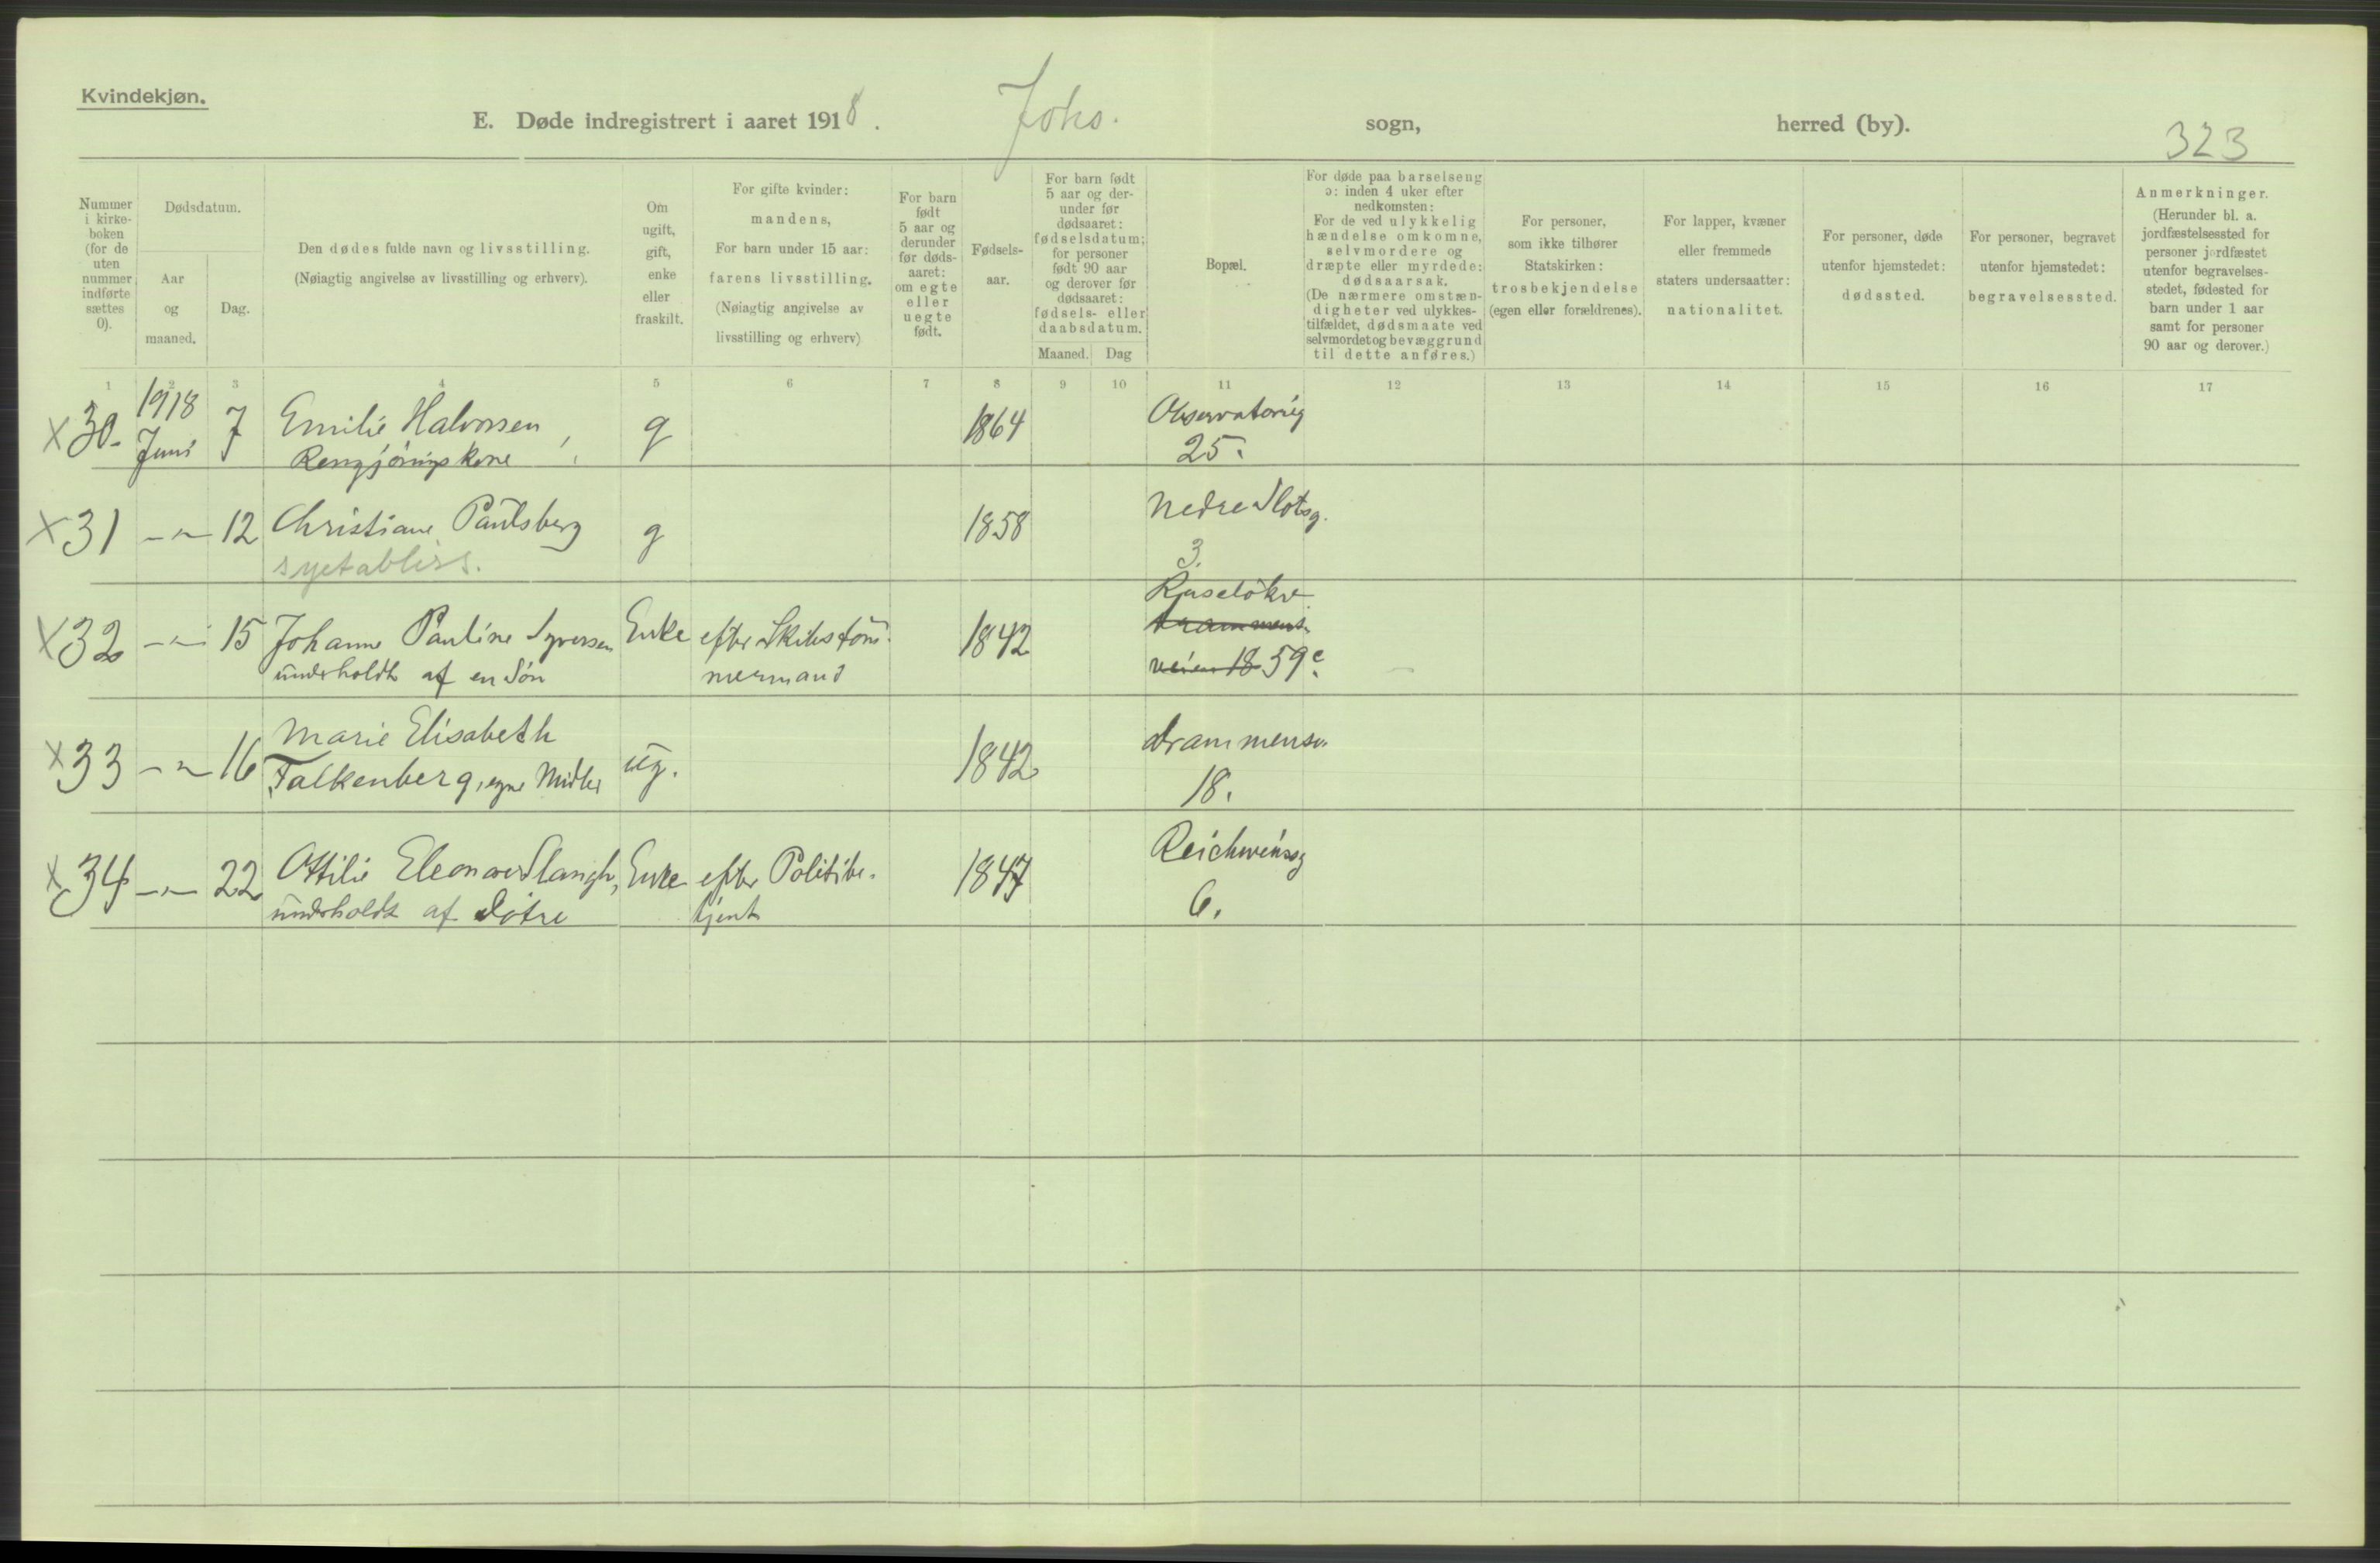 Kvindekjøn.
E. Døde indregistrert i aaret 1918. Johs. sogn, herred (by).
323
Nummer i kirke-boken (for de uten nummer indførte sættes 0).
Dødsdatum.
Aar og maaned.
Dag.
Den dødes fulde navn og livsstilling.
(Nøiagtig angivelse av livsstilling og erhverv).
Om ugift, gift, enke eller fraskilt.
For gifte kvinder: mandens,
For barn under 15 aar: farens livsstilling.
(Nøiagtig angivelse av livsstilling og erhverv)
For barn født 5 aar og derunder før døds-aaret: om egte eller uegte født.
Fødsels-aar.
For barn født 5 aar og der-under før dødsaaret: fødselsdatum; for personer født 90 aar og derover før dødsaaret: fødsels- eller daabsdatum.
Maaned. Dag
Bopæl.
For døde paa barselseng ɔ: inden 4 uker efter nedkomsten: For de ved ulykkelig hændelse omkomne, selvmordere og dræpte eller myrdede: dødsaarsak.
(De nærmere omstæn-digheter ved ulykkes-tilfældet, dødsmaate ved selvmordet og bevæggrund til dette anføres.)
For personer, som ikke tilhører Statskirken: trosbekjendelse (egen eller forældrenes).
For lapper, kvæner eller fremmede staters undersaatter: nationalitet.
For personer, døde utenfor hjemstedet: dødssted.
For personer, begravet utenfor hjemstedet: begravelsessted.
Anmerkninger.
(Herunder bl. a. jordfæstelsessted for personer jordfæstet utenfor begravelses-stedet, fødested for barn under 1 aar samt for personer 90 aar og derover.)
1 2 3 4 5 6 7 8 9 10 11 12 13 14 15 16 17
x 30. 1918 Juni 7 Emilie Halvorsen, g 1864 Observatorieg
Rengjøringskone 25.
x 31 -"- 12 Christiane Paulsberg g 1858 Nedre Slotsg.
syetabliss. 3.
x 32 -"- 15 Johanne Pauline Syversen Enke efter Skibstøm- 1842 Ruseløkv. Drammens-
underholdt af en Søn mermand veien 18 59c.
x 33 -"- 16 Marie Elisabeth ug. 1842 Drammensv.
Falkenberg, egne Midler 18.
x 34 -"- 22 Ottilie Eleonore Slangh, Enke efter Politibe- 1847 Reichweinsg
underholdt af Døtre tjent 6.